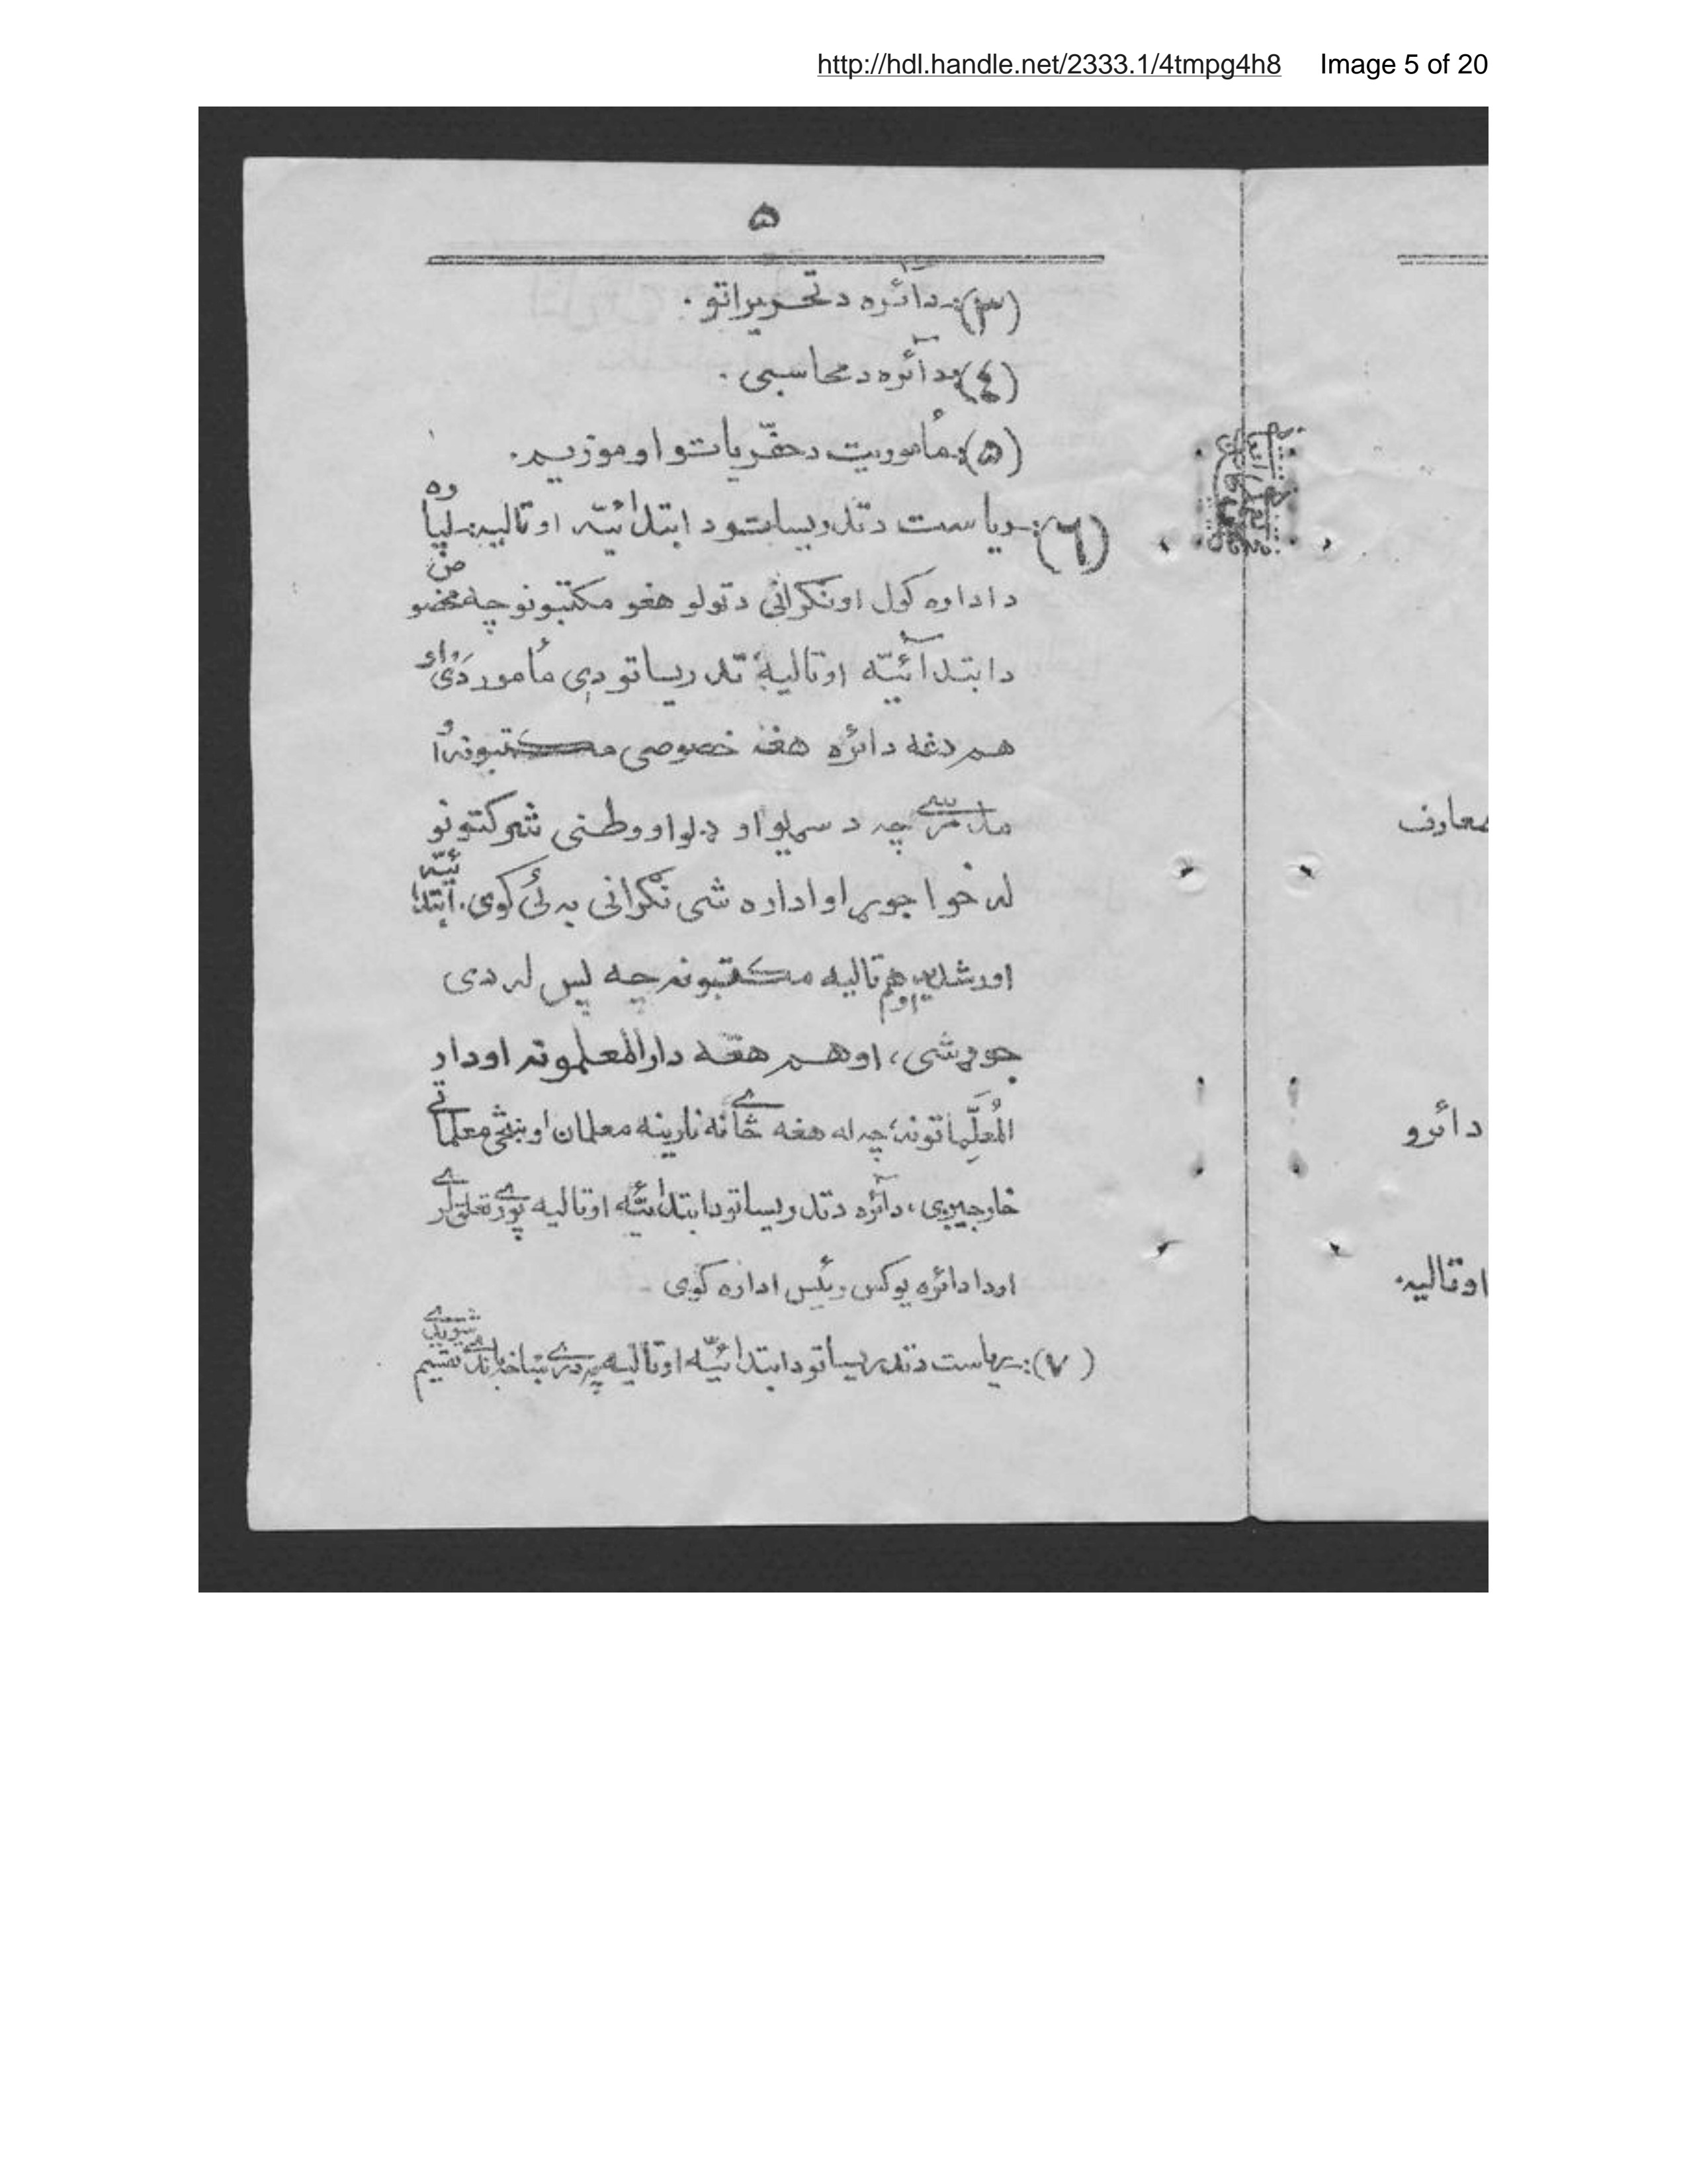 http://hdl.handle.net/2333.1/4tmpg4h8 Image 5 of 20
۵
(۳):ــدائره د تحریراتو .
(٤):ــدآئره د محاسبی .
(۵): مأموریت د حفّریاتو او موزیم.
(٦):ــ ریاست د تدریساتو د ابتدائیّه او تالیه:
د اداره کول او نگرانی د تولو هغو مکتبونو چه مخصوص
د ابتدآئیّه او تالیهٔ تدریساتو دی مأمور دَی، او
هم دغه دائره هغه خصوصی مکتبونه او
مدرسے چه د سړیو او ډلو او وطنی شرکتونو
له خوا جوړ او اداره شی نگرانی به ئی کوی. ابتدائیّه
او رشدیه او هم تالیه مکتبونه چه پس له دی
جوړ شی، او هم هغه دارالمعلمونه او دار
المُعلِّماتونه، چه له هغه ځانه نارینه معلمان او ښځی معلماتے
خارجیږی، دآئره د تدریساتو د ابتدائیّه او تالیه پورے تعلق لرے
او دا دائره یو کس رئیس اداره کوی
(۷):ــ ریاست د تدریساتو د ابتدائیّه او تالیه په درے ښاخه باندے تقسیم شویدے
معارف
دائرو
او تالیه.